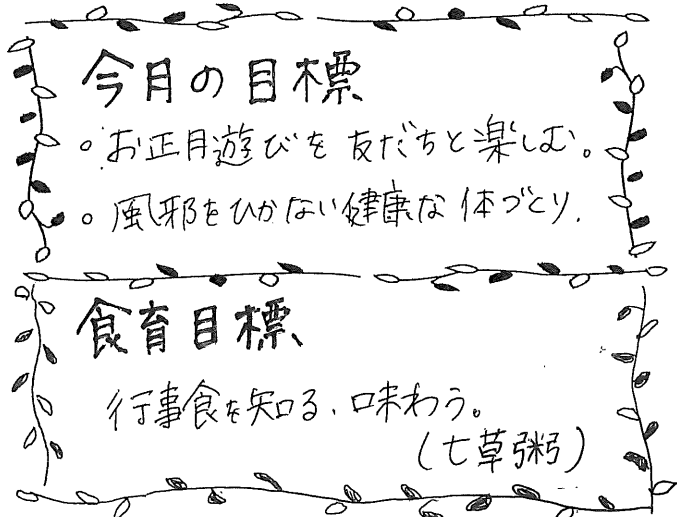 今月の目標
。お正月遊びを友だちと楽しむ。
。風邪をひかない健康な体づくり.
食育目標
行事食を知る、味わう。
(七草粥)